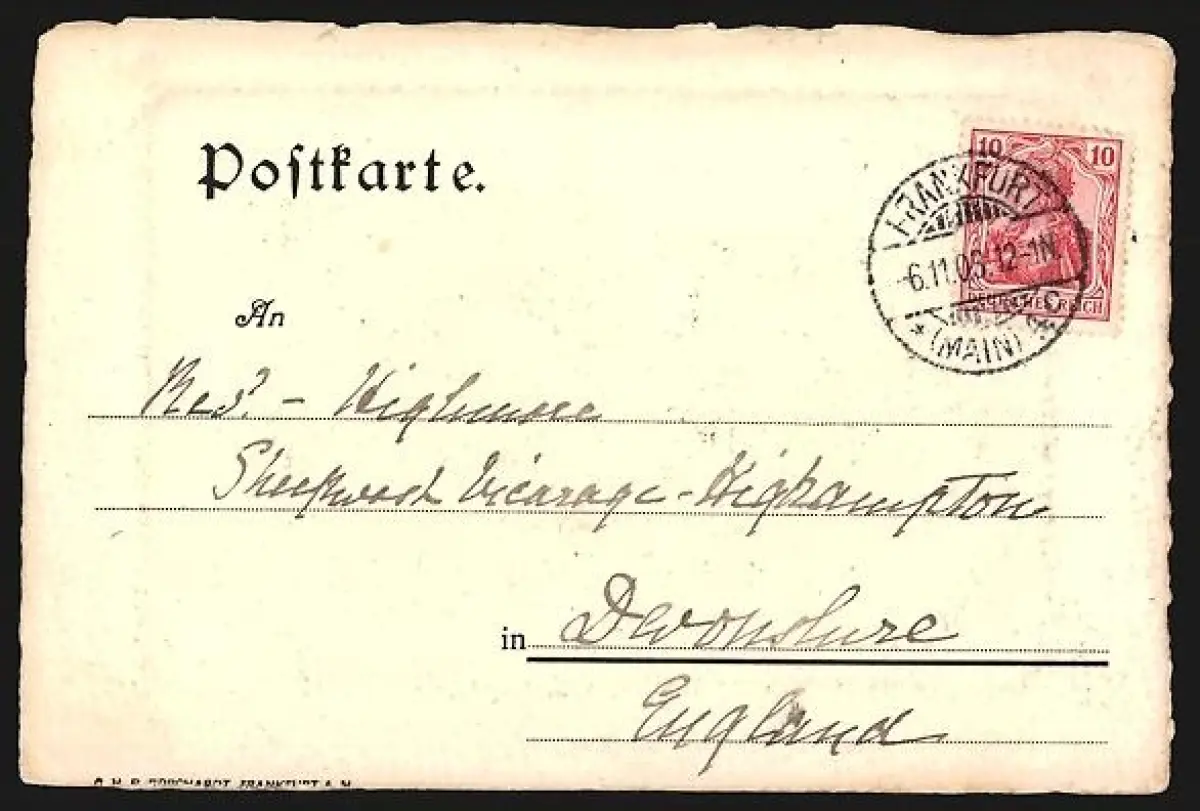 Poſtkarte.
10 10
FRANKFURT
6.11.05. 12-1N.
* (MAIN)
DEUTSCHES REICH
An
Revd. - Highmore
Sheepwash Vicarage - Highampton
in Devonshire
England
FRANKFURT A. M.